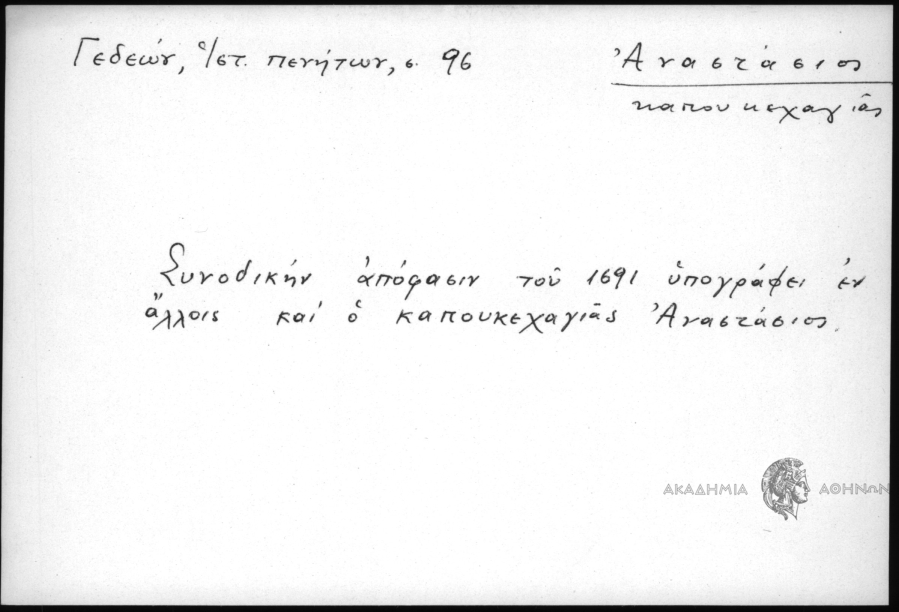 Γεδεών, Ἱστ. πενήτων, σ. 96
Ἀναστάσιος
καπουκεχαγιᾶς
Συνοδικήν ἀπόφασιν τοῦ 1691 ὑπογράφει ἐν
ἄλλοις καί ὁ καπουκεχαγιᾶς Ἀναστάσιος.
ΑΚΑΔΗΜΙΑ ΑΘΗΝΩΝ